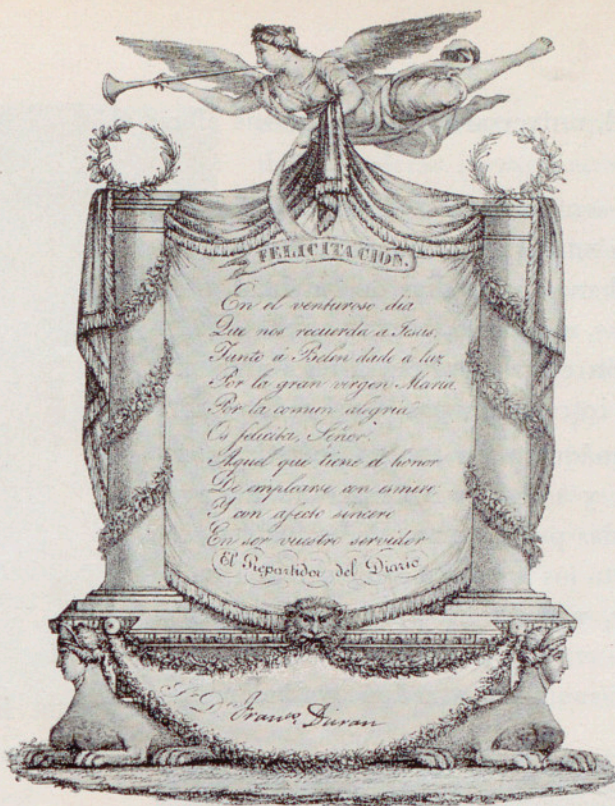 FELICITACION.
En el venturoso dia
Que nos recuerda a Jesus,
Junto á Belen dado á luz
Por la gran virgen Maria.
Por la comun alegria
Os felicita, Señor.
Aquel que tiene el honor
De emplearse con esmero;
Y con afecto sincero
En ser vuestro servidor
El Repartidor del Diario
Sr. Dn. Franco. Duran